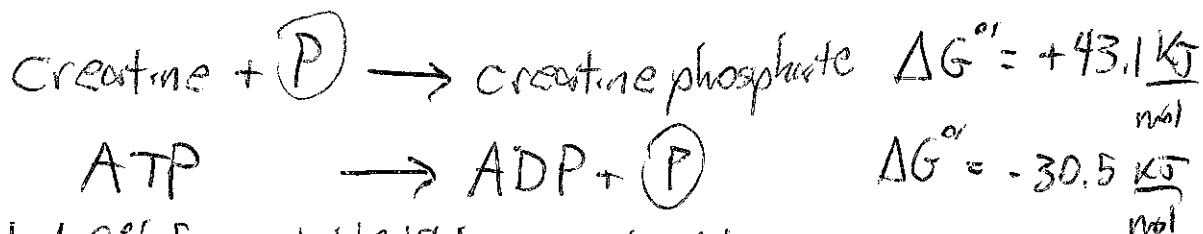 Creatine + P → creatine phosphate ΔG°' = +43.1 KJ/mol
ATP → ADP + P ΔG°' = -30.5 KJ/mol